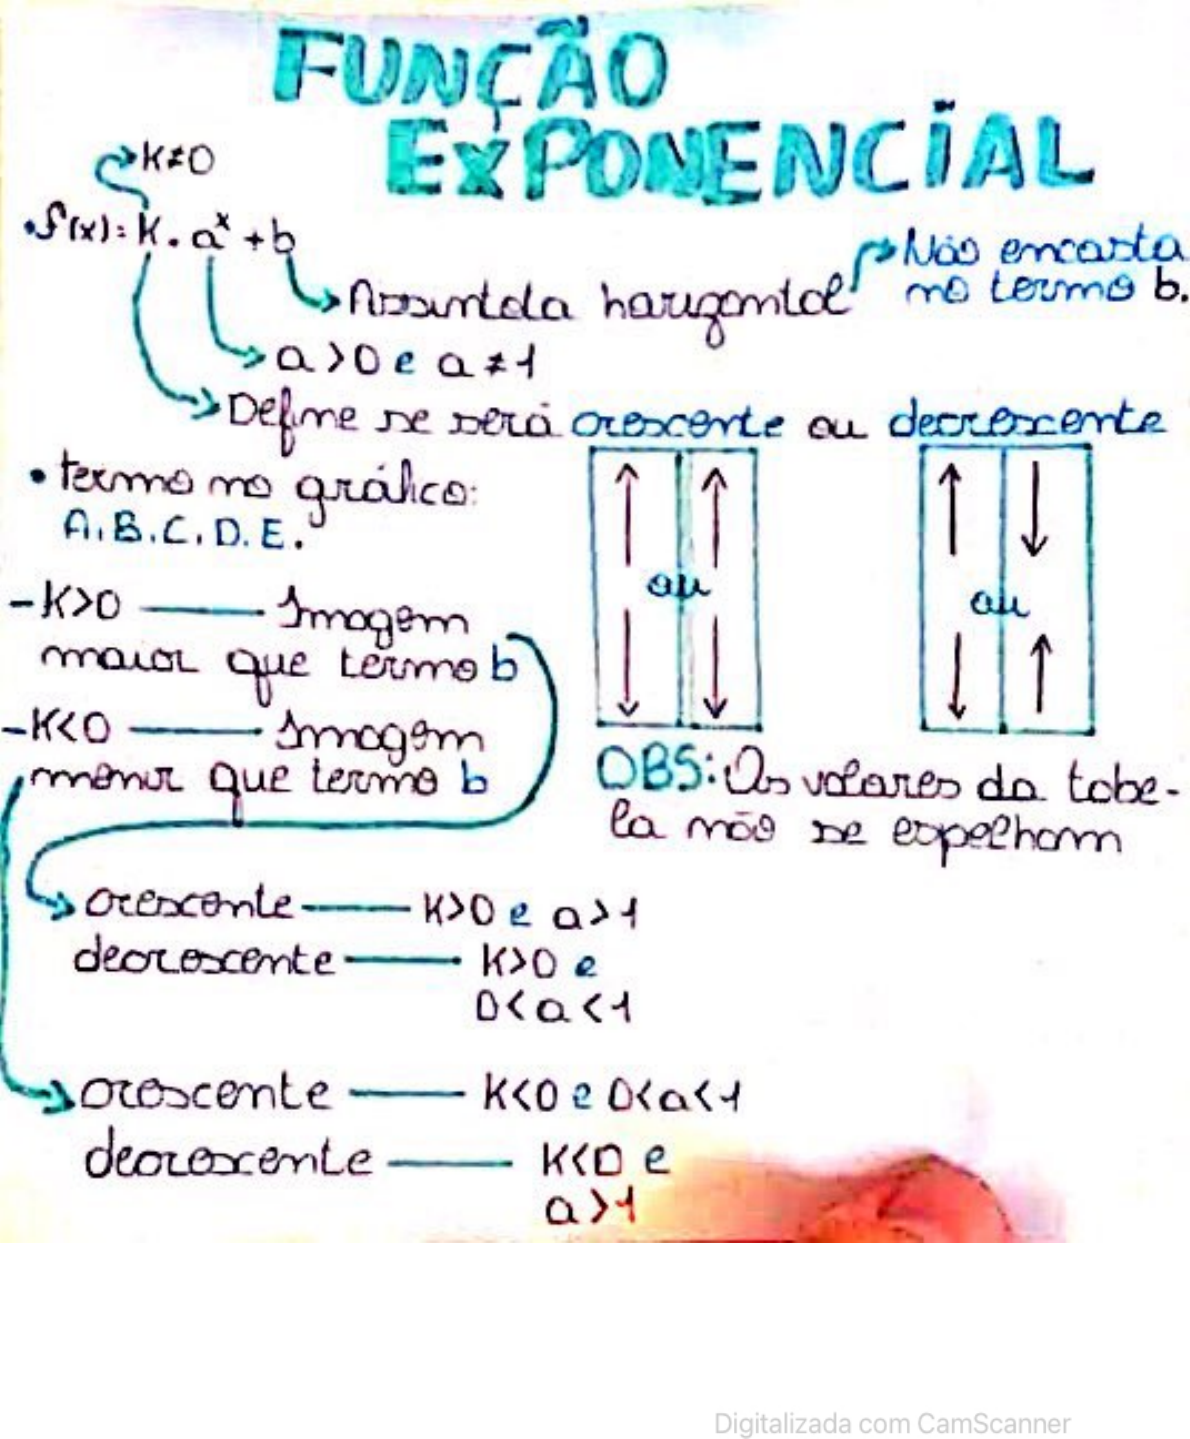 FUNÇÃO
EXPONENCIAL
k≠0
• f(x): k . aˣ + b
Assíntota horizontal
Não encosta
no termo b.
a > 0 e a ≠ 1
Define se será crescente ou decrescente
• termo no gráfico:
A. B. C. D. E.
ou
ou
- K>0 — Imagem
maior que termo b
- K<0 — Imagem
menor que termo b
OBS: Os valores da tabe-
la não se espelham
crescente — K>0 e a>1
decrescente — K>0 e
0<a<1
crescente — K<0 e 0<a<1
decrescente — K<0 e
a>1
Digitalizada com CamScanner